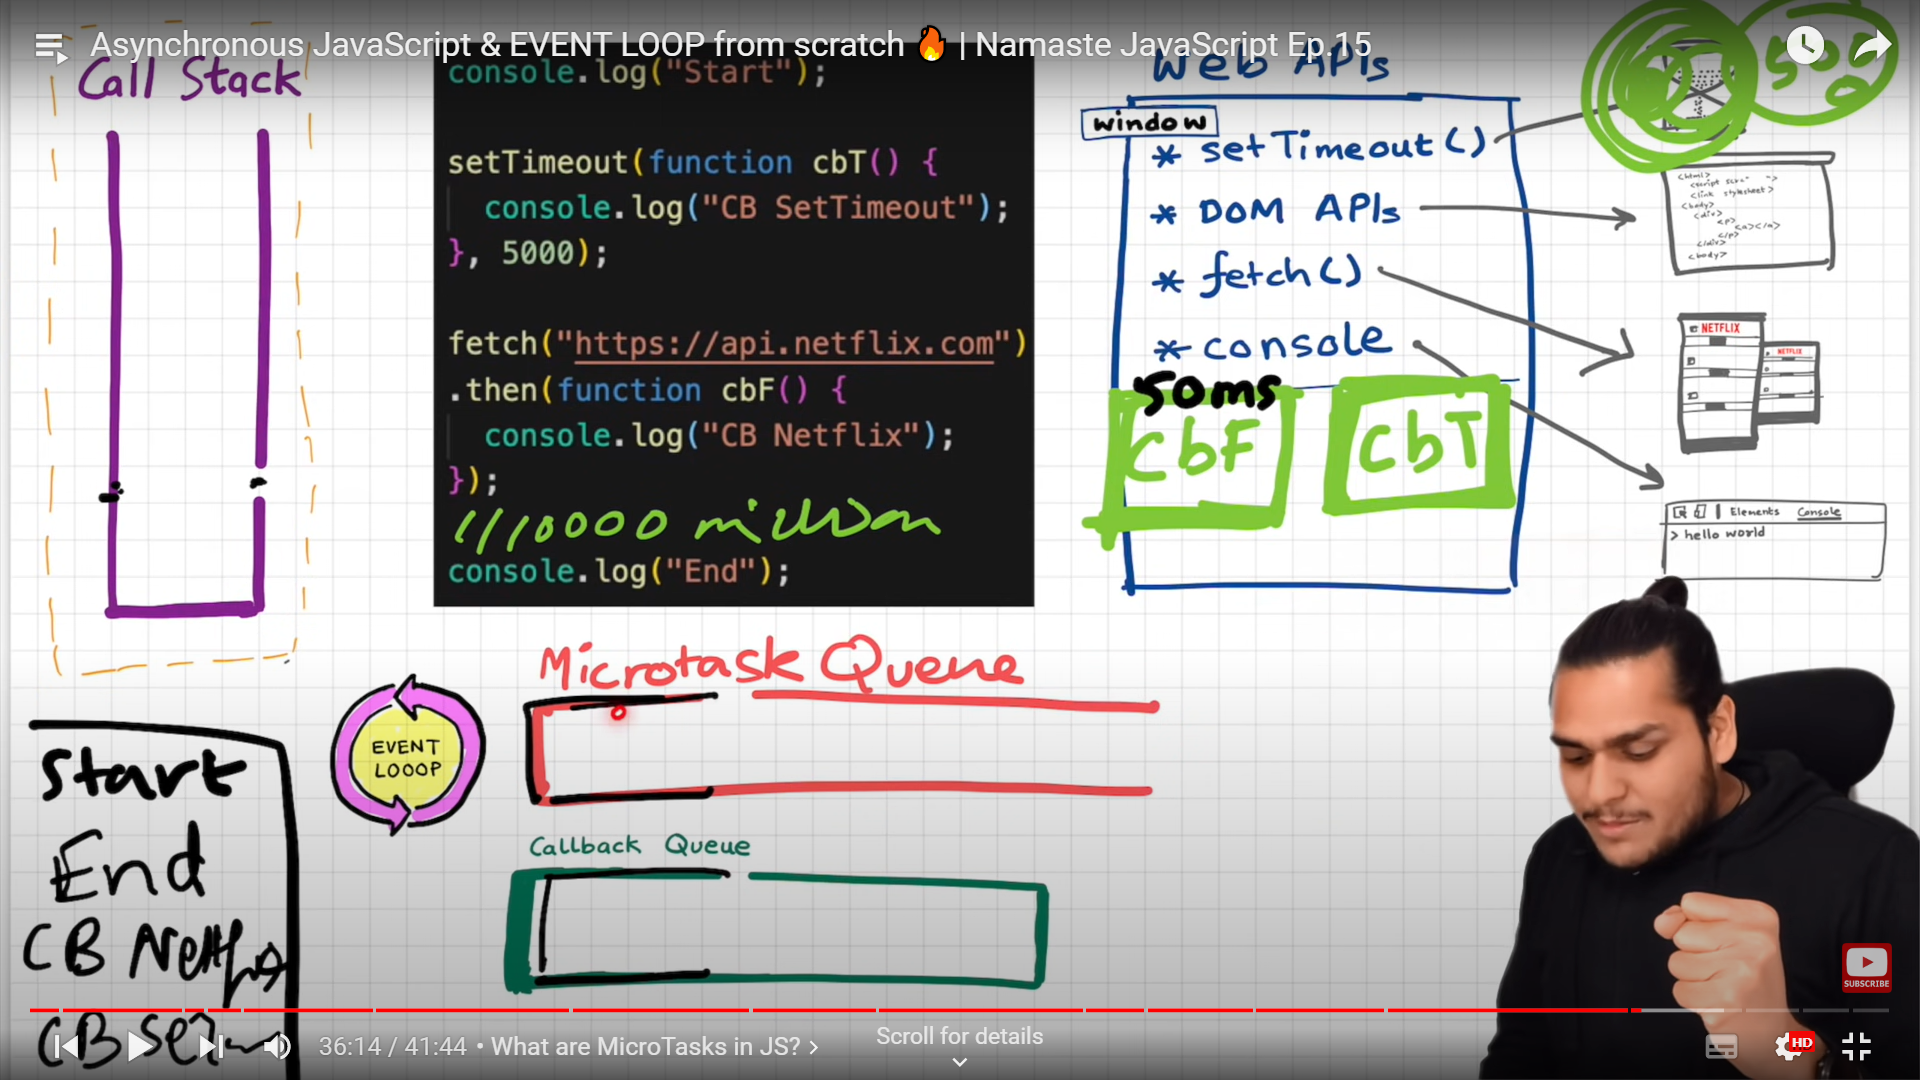 Asynchronous JavaScript & EVENT LOOP from scratch 🔥 | Namaste JavaScript Ep.15
Call Stack
console.log("Start");
setTimeout(function cbT() {
console.log("CB SetTimeout");
}, 5000);
fetch("https://api.netflix.com")
.then(function cbF() {
console.log("CB Netflix");
});
10000 million
console.log("End");
Web APIs
window
* setTimeout()
* DOM APIs
* fetch()
* console
50ms
CbF
CbT
5000
<html>
<body>
<div>
<p>
<a></a>
</p>
</div>
<body>
NETFLIX
NETFLIX
Elements Console
> hello world
Microtask Queue
EVENT
LOOOP
Callback Queue
Start
End
CB
CB
SUBSCRIBE
36:14 / 41:44 • What are MicroTasks in JS? >
Scroll for details
HD